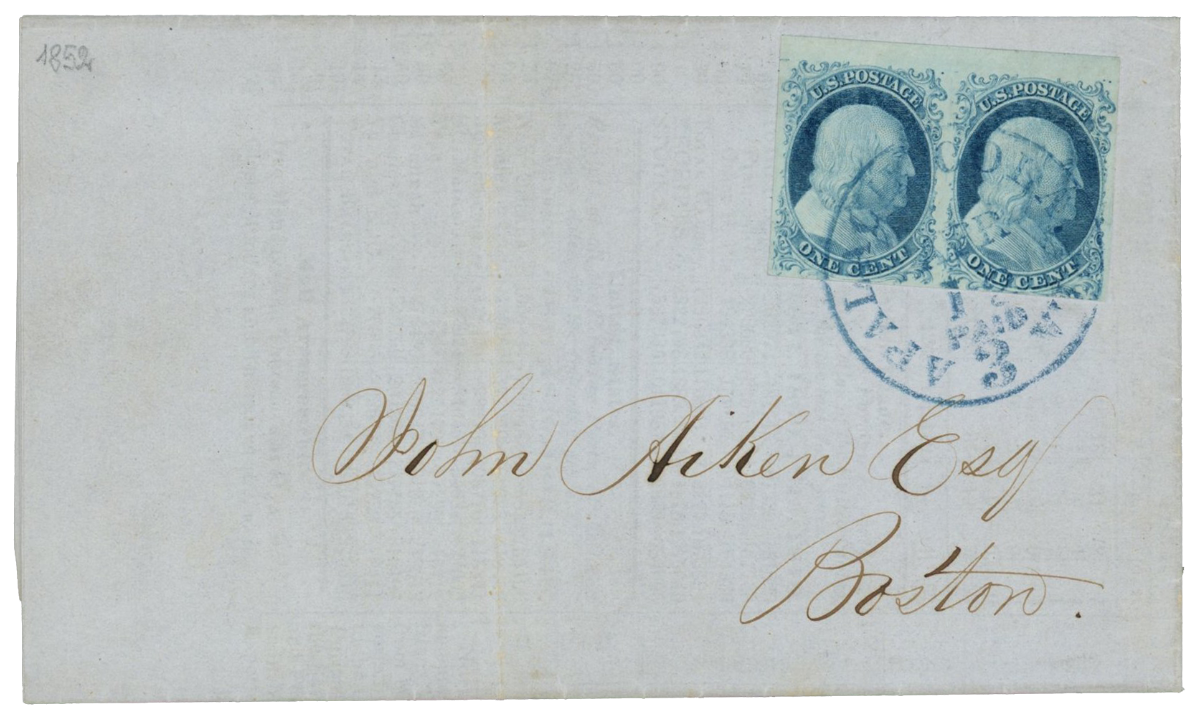 1852
U.S.POSTAGE
ONE CENT
U.S.POSTAGE
ONE CENT
PAID
3
John Aiken Esq
Boston.